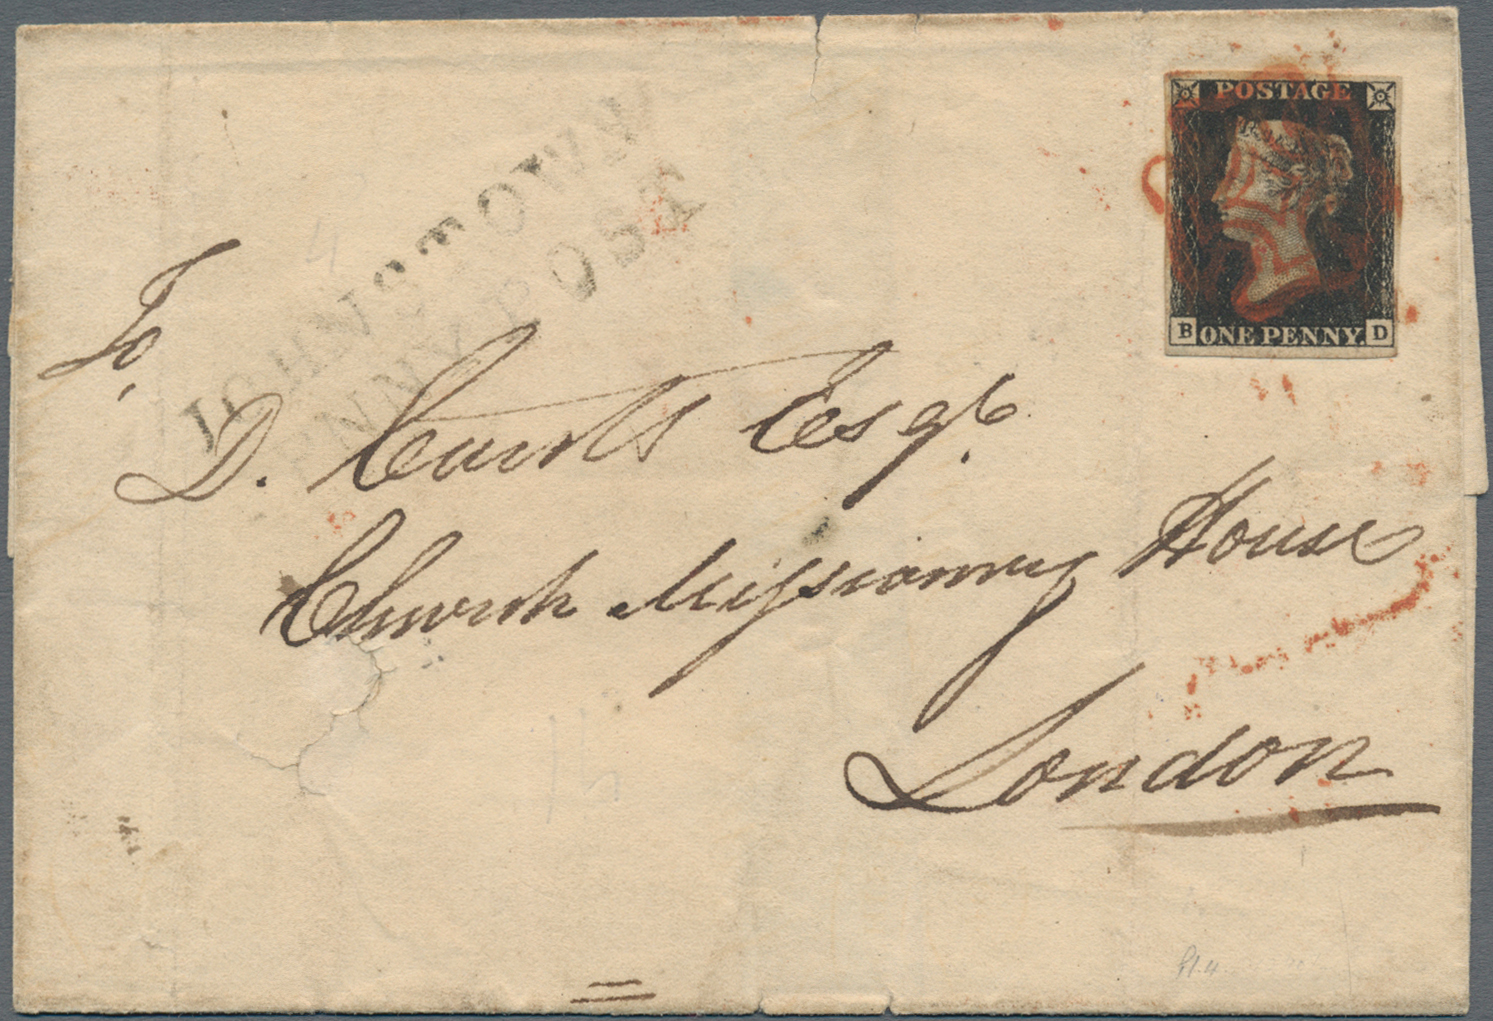 POSTAGE
B ONE PENNY. D
JOHNSTOWN
PENNY POST
To,
D. Coates Esqr.
Church Missionary House
London
Pl. 4